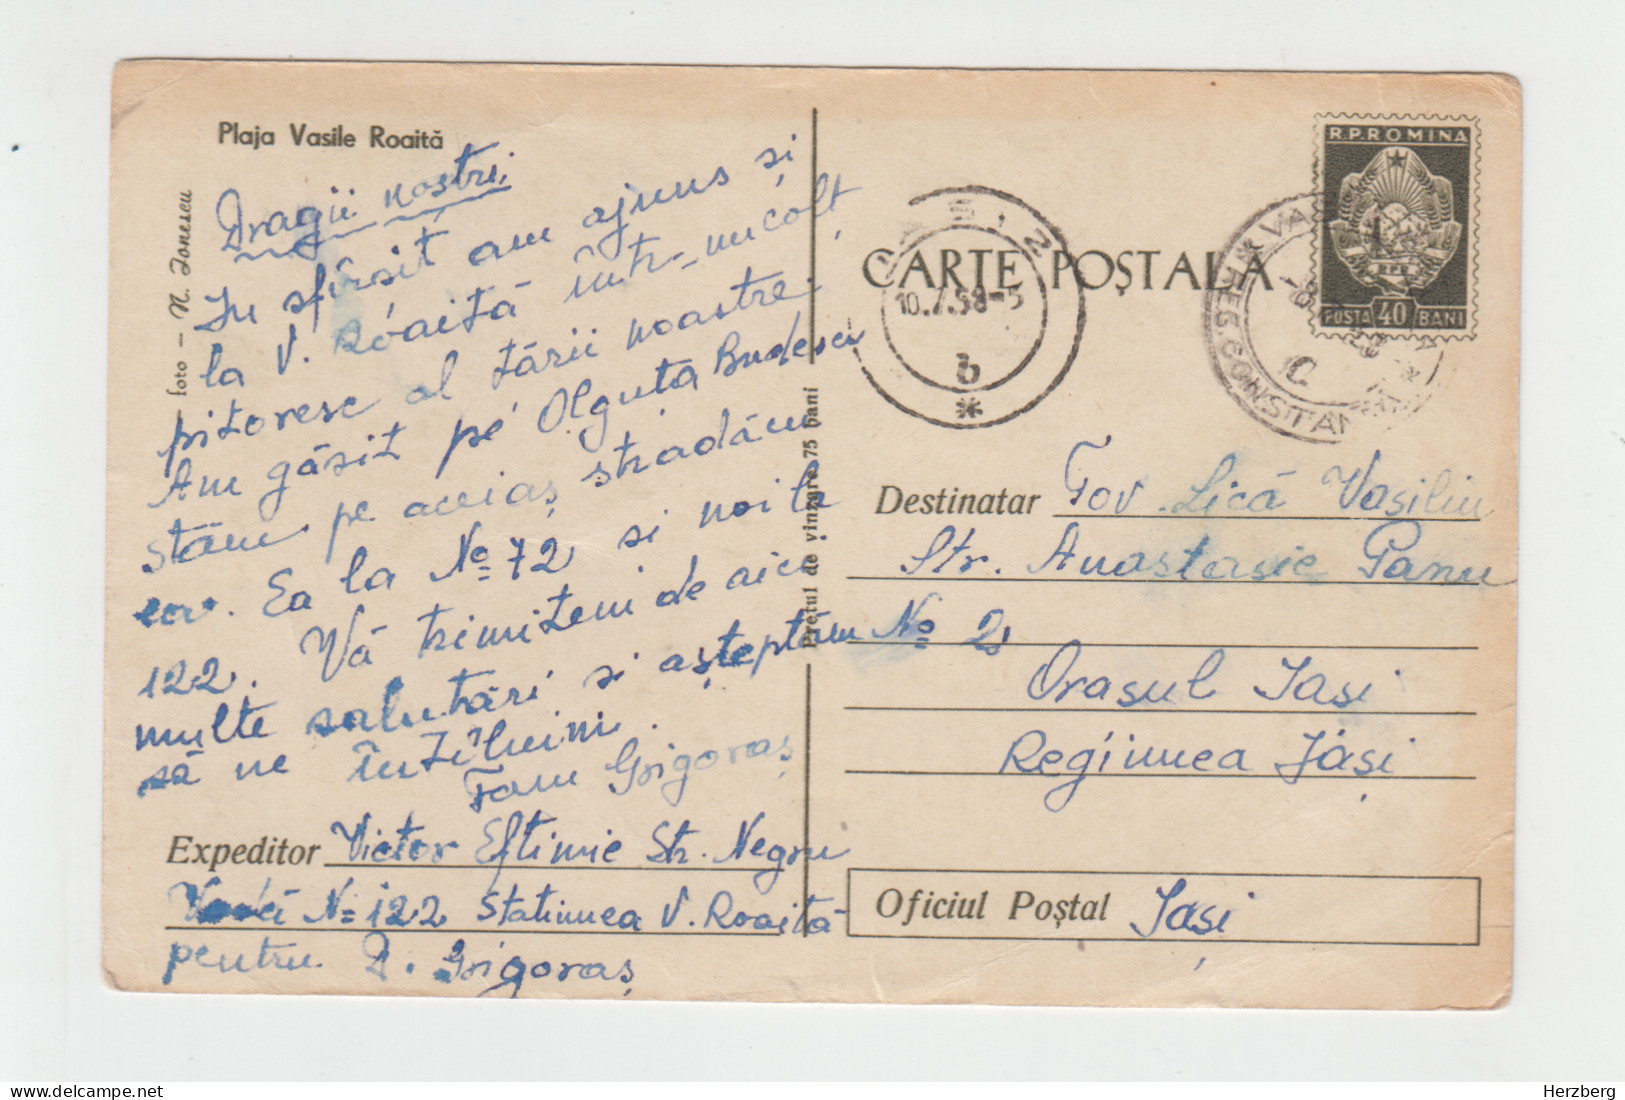 Plaja Vasile Roaită
foto — N. Ionescu
Dragii noștri,
In sfîrsit am ajuns si
la V. Roaită într-un colț
pitoresc al țării noastre.
Am găsit pe Olguta Budescu
stăm pe aceiaș stradă cu
ea. Ea la No 72 si noi la
122. Vă trimitem de aici
multe salutări si așteptăm
să ne întîlnim.
Fam Grigoraș
Expeditor Victor Eftimie Str. Negru
Vodă No 122 Statiunea V. Roaită
pentru D. Grigoraș
Prețul de vînzare 75 bani
CARTE POȘTALĂ
R.P.ROMINA
R.P.R
POSTA 40 BANI
10.7.58-5
b
REG. CONSTANȚA
C
Destinatar Tov. Lică Vasiliu
Str. Anastasie Panu
No 2
Orasul Iasi
Regiunea Iași
Oficiul Poștal Iași
Herzberg